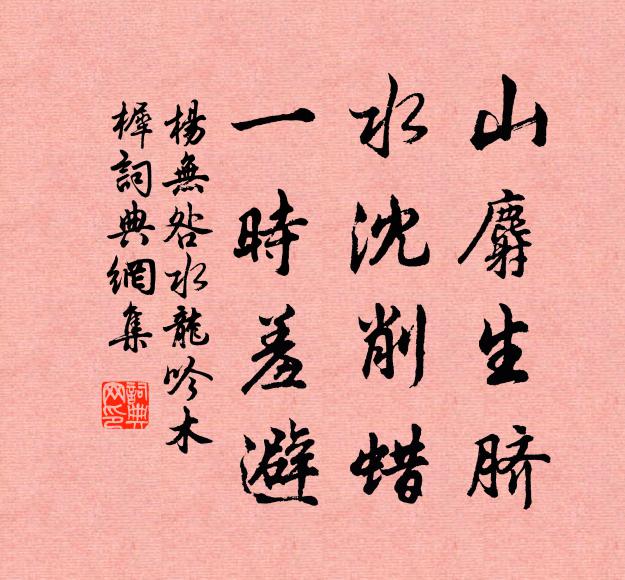 山麝生脐
水沈削蜡
一時羞避
楊無咎水龍吟木
樨詞典網集
詞典
网印